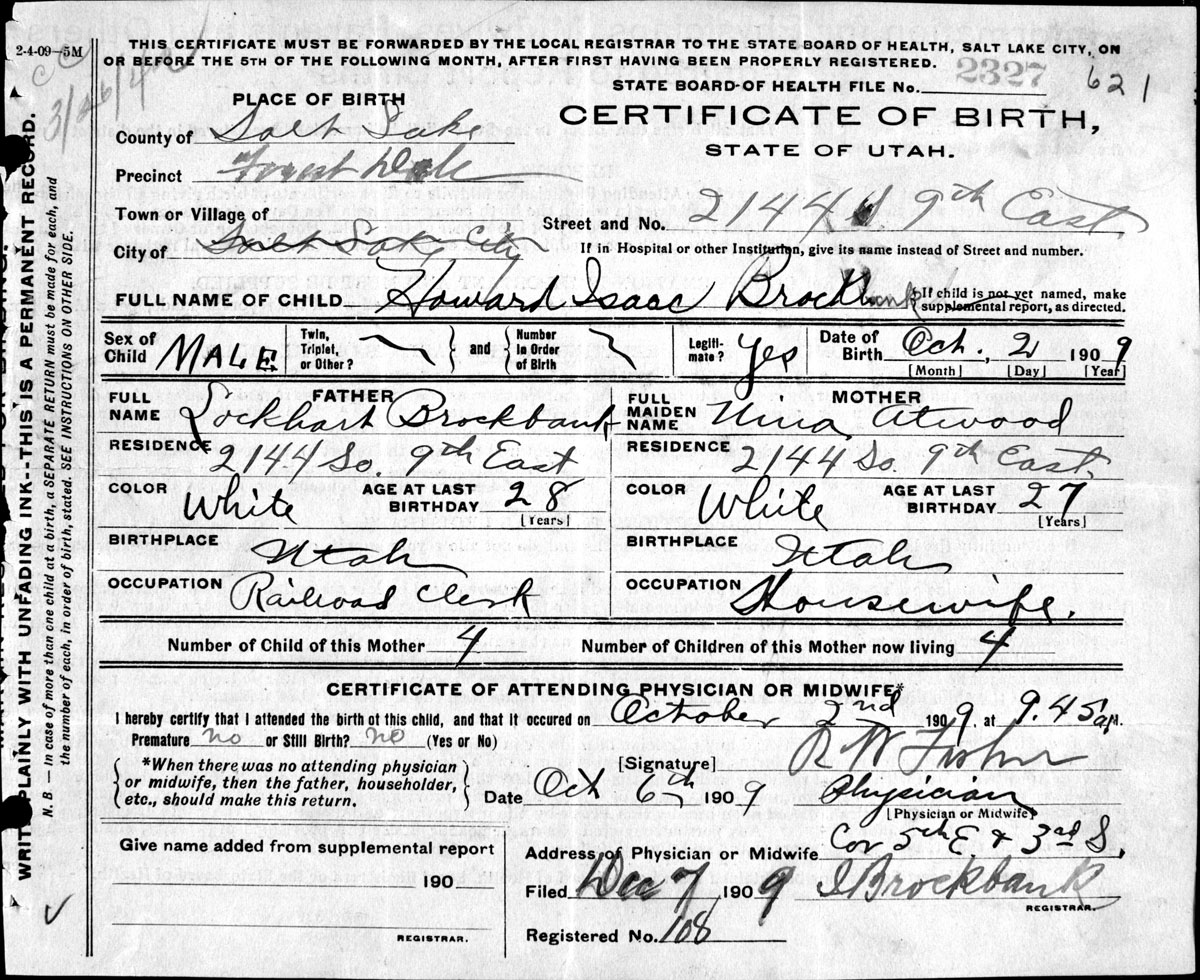 2-4-09—5M
THIS CERTIFICATE MUST BE FORWARDED BY THE LOCAL REGISTRAR TO THE STATE BOARD OF HEALTH, SALT LAKE CITY, ON
OR BEFORE THE 5TH OF THE FOLLOWING MONTH, AFTER FIRST HAVING BEEN PROPERLY REGISTERED.
2327
621
STATE BOARD OF HEALTH FILE No.
PLACE OF BIRTH
CERTIFICATE OF BIRTH,
STATE OF UTAH.
County of Salt Lake
Precinct Forest Dale
Town or Village of
City of Salt Lake City
Street and No. 2144 S. 9th East
If in Hospital or other Institution, give its name instead of Street and number.
FULL NAME OF CHILD Howard Isaac Brockbank
{If child is not yet named, make
supplemental report, as directed.
Sex of Child MALE
Twin, Triplet, or Other? } and { Number in Order of Birth }
Legiti-mate? Yes
Date of Birth Oct., 2 1909
[Month] [Day] [Year]
FATHER
FULL NAME Lockhart Brockbank
RESIDENCE 2144 So. 9th East
COLOR White AGE AT LAST BIRTHDAY 28 [Years]
BIRTHPLACE Utah
OCCUPATION Railroad Clerk
MOTHER
FULL MAIDEN NAME Nina Atwood
RESIDENCE 2144 So. 9th East,
COLOR White AGE AT LAST BIRTHDAY 27 [Years]
BIRTHPLACE Utah
OCCUPATION Housewife.
Number of Child of this Mother 4 Number of Children of this Mother now living 4
CERTIFICATE OF ATTENDING PHYSICIAN OR MIDWIFE*
I hereby certify that I attended the birth of this child, and that it occured on October 2nd 1909. at 9.45 a M.
Premature no or Still Birth? no (Yes or No)
{*When there was no attending physician
or midwife, then the father, householder,
etc., should make this return.}
[Signature] R W Fisher
Date Oct 6th 1909 Physician
[Physician or Midwife]
Give name added from supplemental report
190
REGISTRAR.
Address of Physician or Midwife Cor 5th E & 3rd S.
Filed Dec 7 1909 I Brockbank
REGISTRAR.
Registered No. 108
WRITE PLAINLY WITH UNFADING INK--THIS IS A PERMANENT RECORD.
N. B — In case of more than one child at a birth, a SEPARATE RETURN must be made for each, and
the number of each, in order of birth, stated. SEE INSTRUCTIONS ON OTHER SIDE.